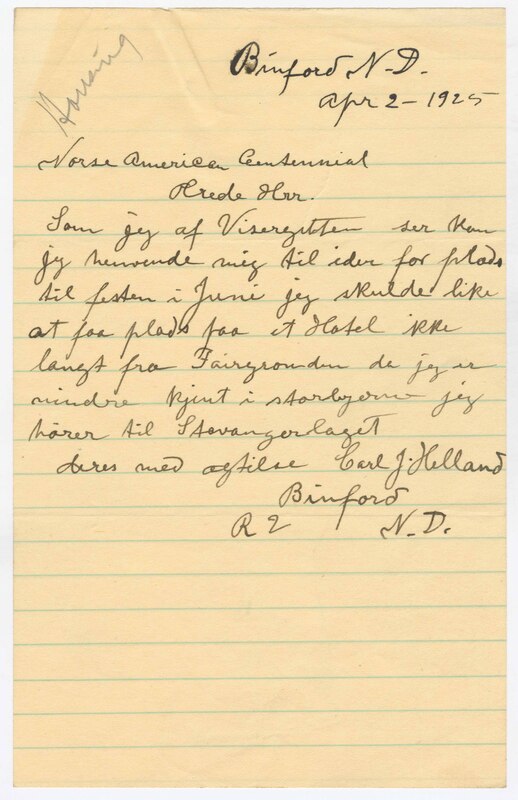 Housing
Binford N.D.
Apr 2 - 1925
Norse American Centennial
Hrede Hrr.
Som jeg af Visergutten ser kan
jeg henvende mig til eder for plads
til festen i Juni jeg skulde like
at faa plads paa et Hotel ikke
langt fra Fairgrounden da jeg er
mindre kjent i storbyerne jeg
hører til Stavangerlaget
deres med agtilse Carl J. Helland
Binford
R 2 N.D.